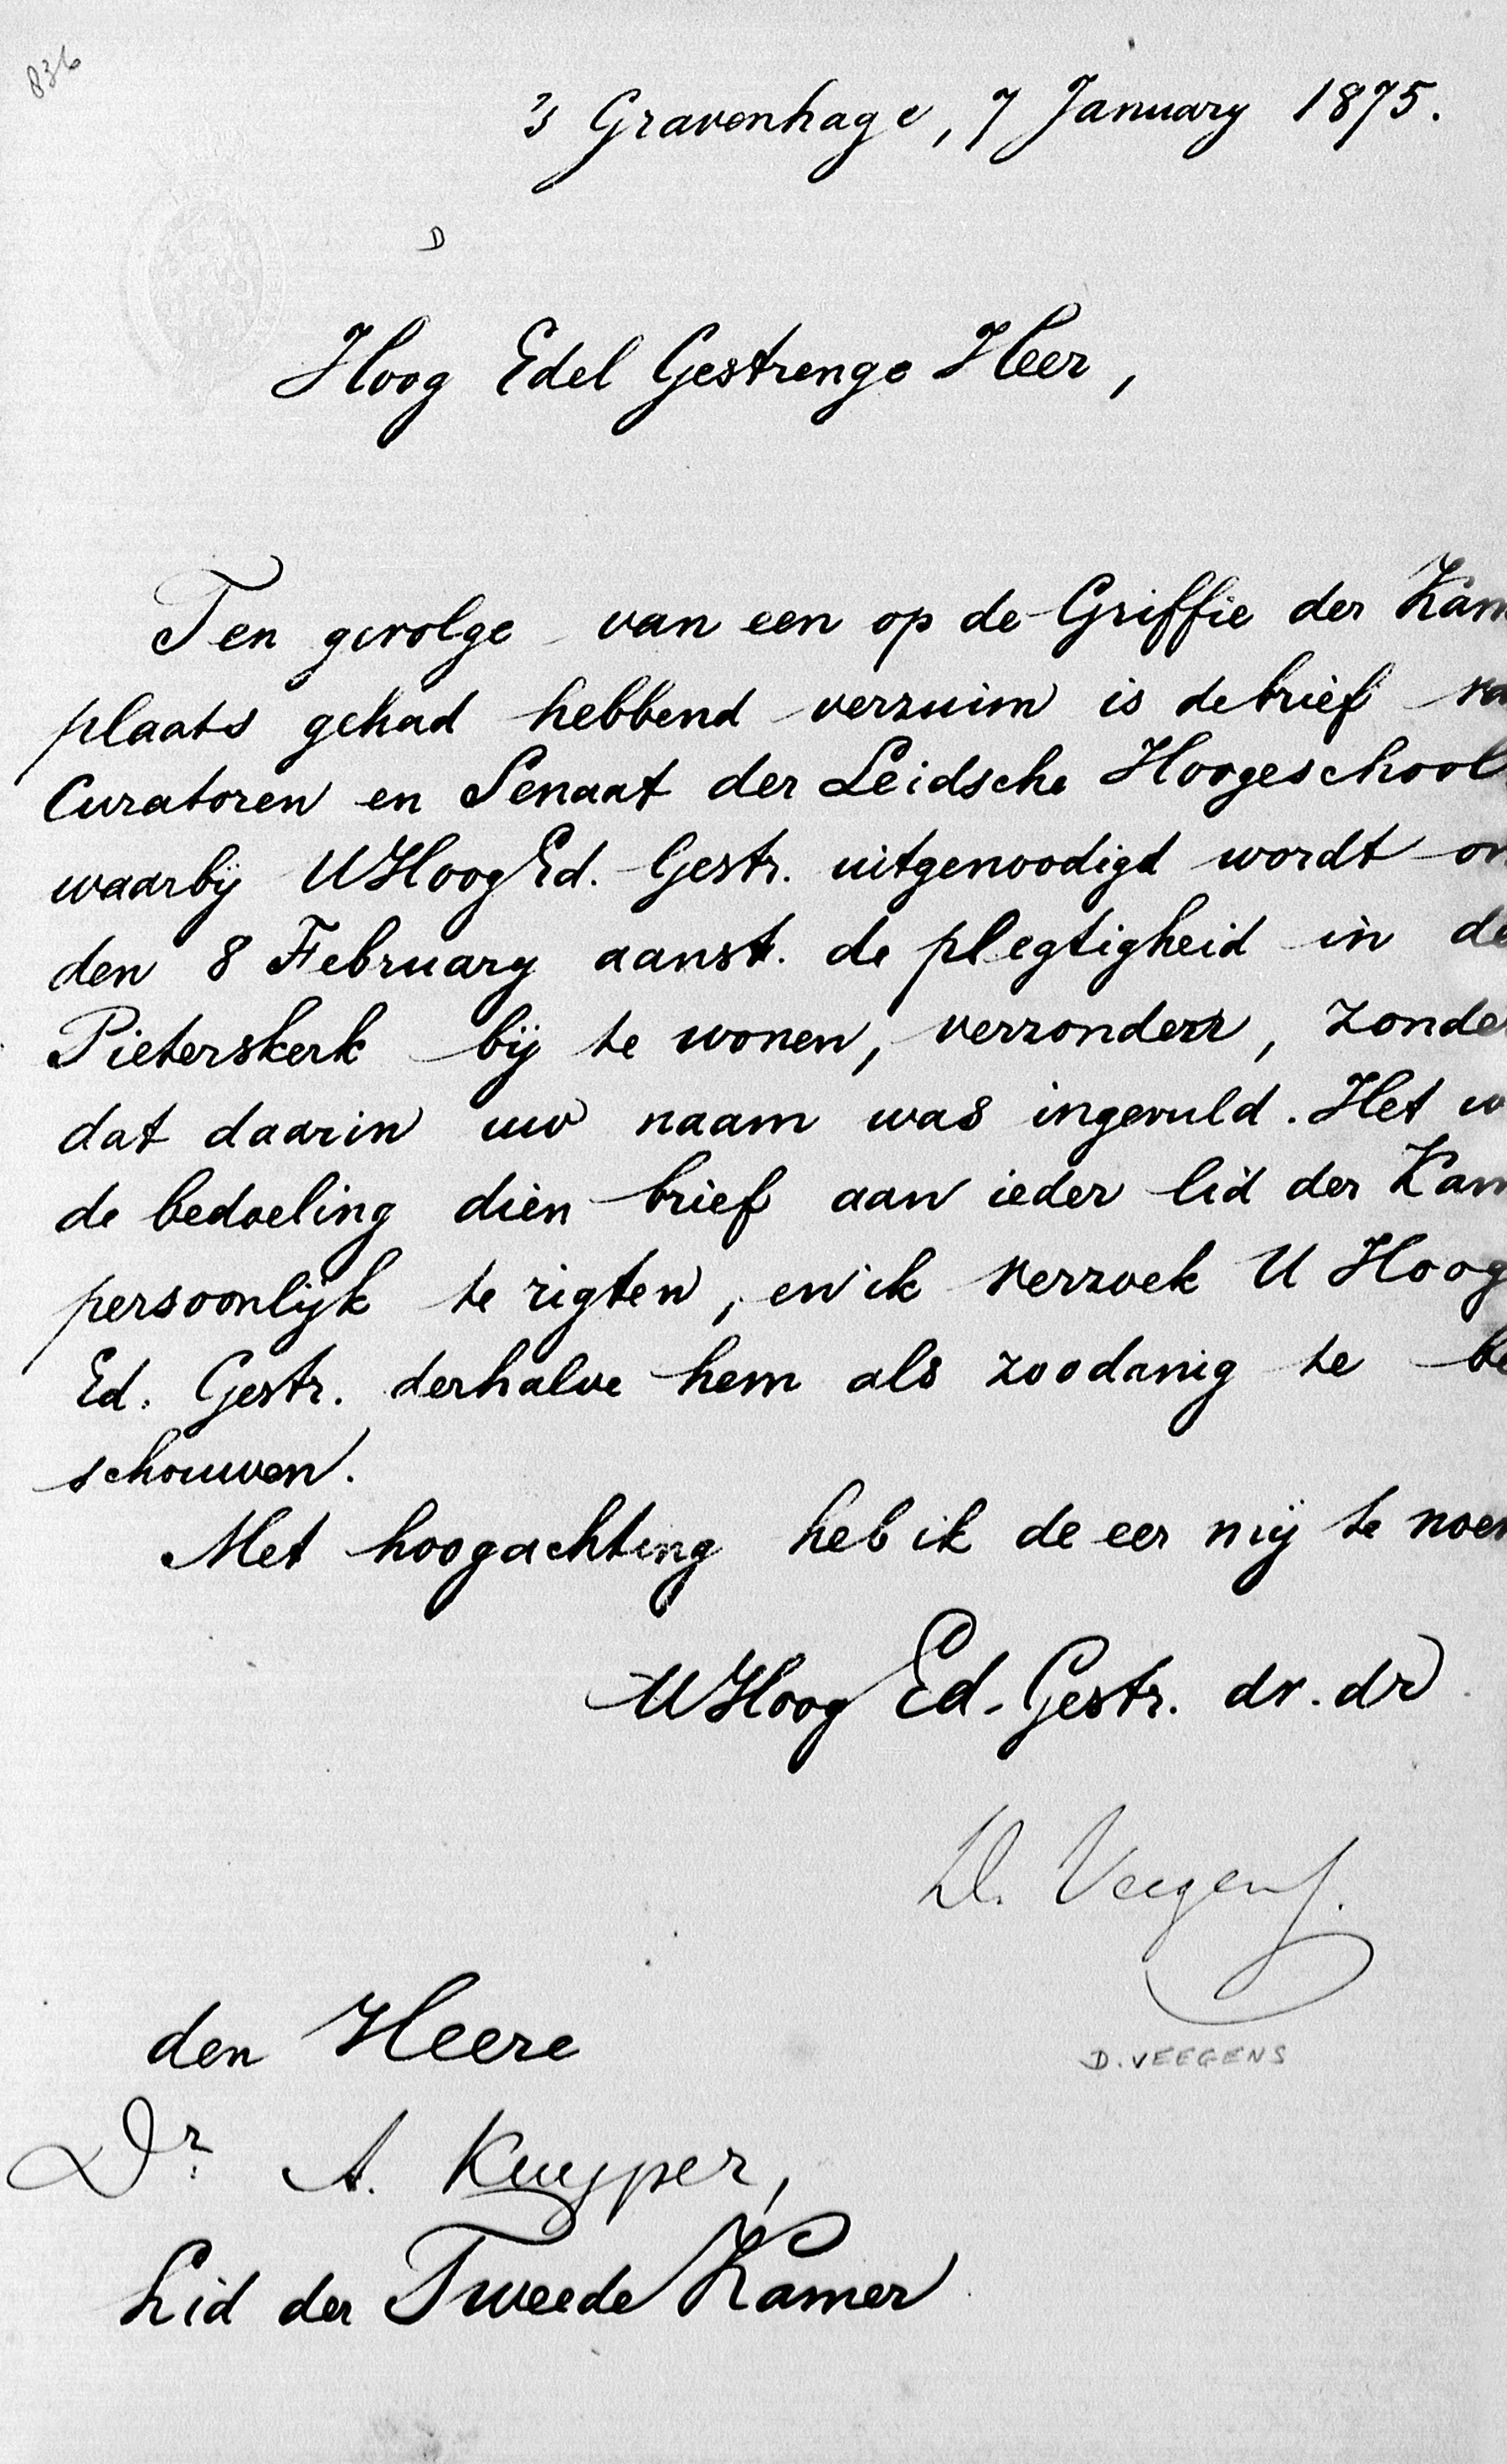 836
's Gravenhage, 7 January 1875.
D
Hoog Edel Gestrenge Heer,
Ten gevolge van een op de Griffie der Kam
plaats gehad hebbend verzuim is de brief va
Curatoren en Senaat der Leidsche Hoogeschool
waarbij UHoogEd. Gestr. uitgenoodigd wordt om
den 8 February aanst. de plegtigheid in de
Pieterskerk bij te wonen, verzonden, zonder
dat daarin uw naam was ingevuld. Het w
de bedoeling dien brief aan ieder lid der Kam
persoonlijk te rigten, en ik verzoek U Hoog
Ed. Gestr. derhalve hem als zoodanig te be
schouwen.
Met hoogachting heb ik de eer mij te noem
UHoog Ed. Gestr. dv. dr
D. Veegens.
D. VEEGENS
den Heere
Dr. A. Kuyper,
Lid der Tweede Kamer